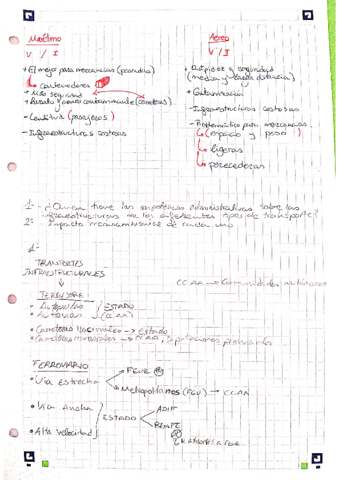 Marítimo
V / I
+ El mejor para mercancías (pesadas)
↳ contenedores
+ Más seguridad
+ Barato y menos contaminante (carreteras)
- Lentitud (pasajeros)
- Infraestructuras costosas
Aéreo
V / I
+ Rapidez y seguridad
(media y larga distancia)
+ Contaminación
- Infraestructuras costosas
- Problemático para mercancías
↳ (espacio y peso)
↳ ligeras
↳ perecederas
1- ¿Quién tiene las competencias administrativas sobre las
infraestructuras de los diferentes tipos de transporte?
2- Impacto medioambiental de cada uno
1-
TRANSPORTES
INFRAESTRUCTURALES
CCAA → Comunidades autónomas
TERRESTRE
- Autopistas
- Autovías
ESTADO
(CCAA)
• Carreteras Nacionales → Estado
• Carreteras comarcales → CCAA, Diputaciones provinciales
FERROVIARIO
• Vía Estrecha
FEVE
Metropolitanos (FGV) → CCAA
• Vía Ancha
• Alta Velocidad
ESTADO
ADIF
RENFE